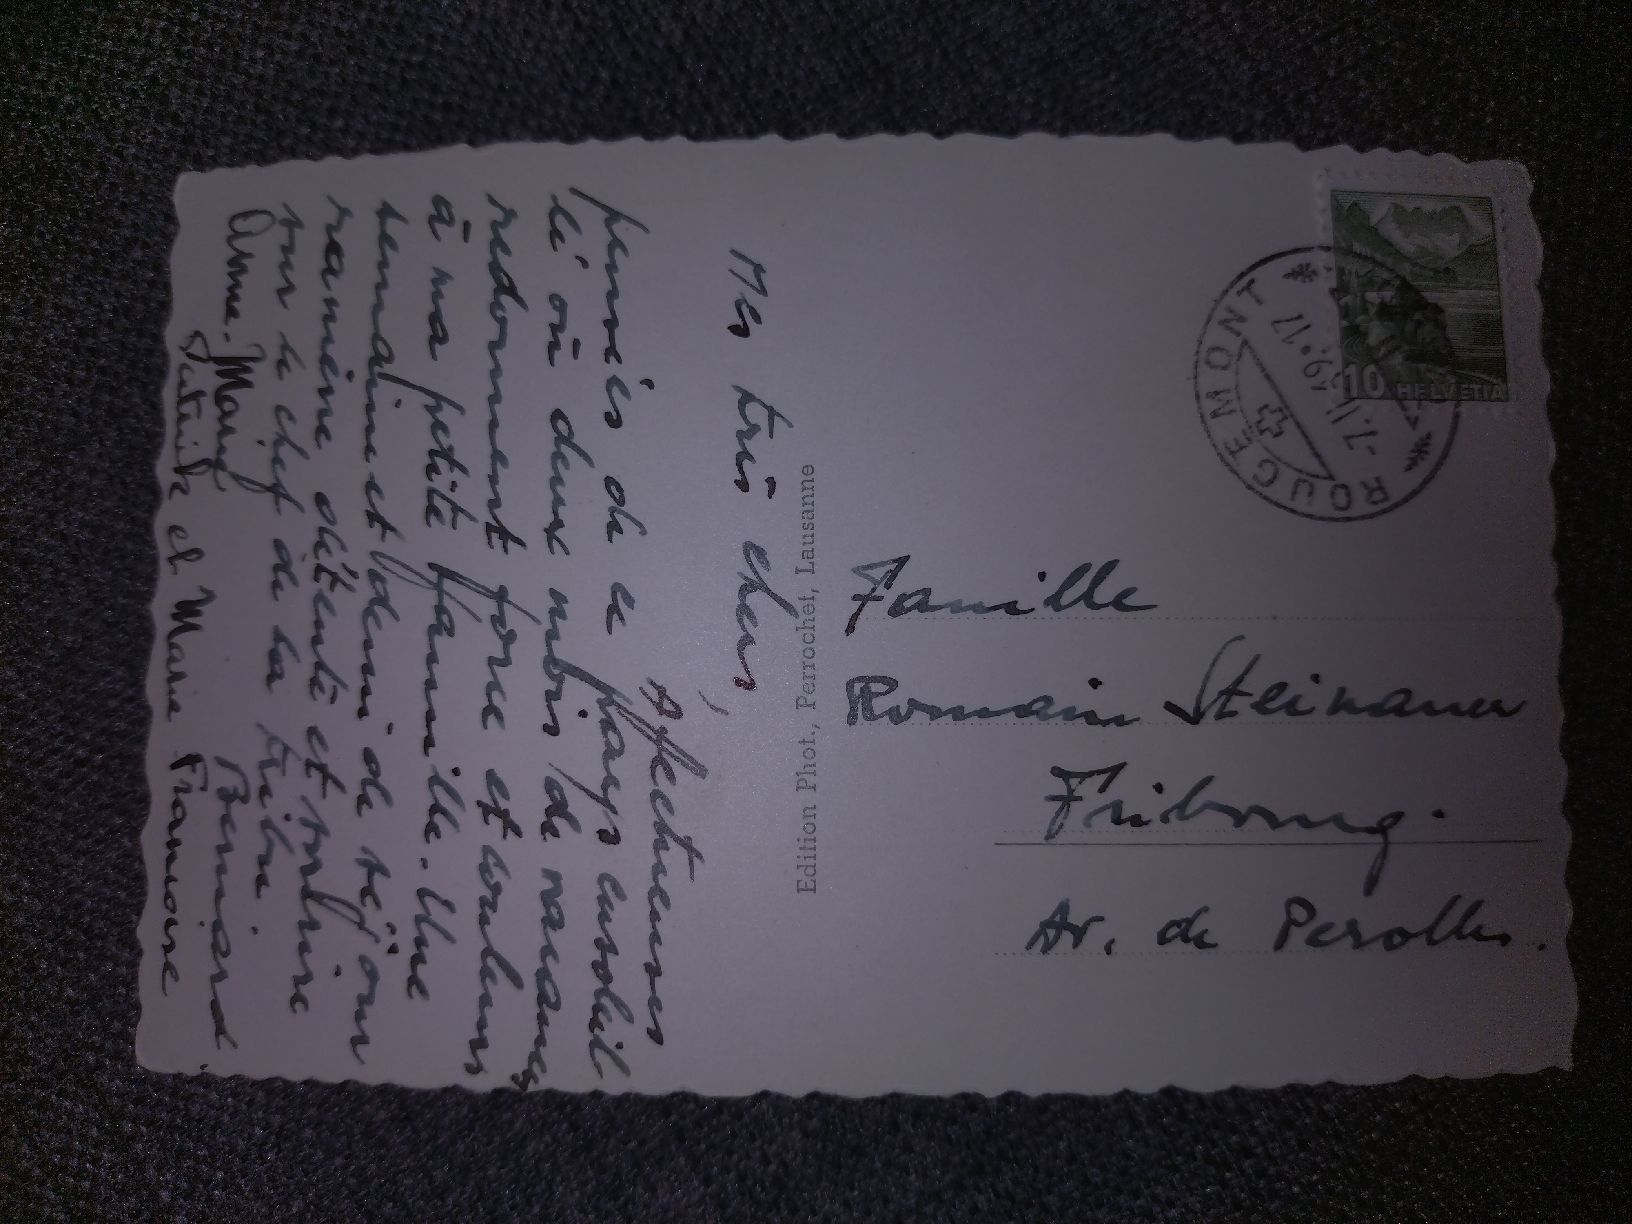 Mes très chers,
Affectueuses
pensées de ce pays ensoleillé
où deux mois de vacances
redonnent force et couleurs
à ma petite famille. Une
semaine et demi de séjour
ramène détente et sourire
sur le chef de la tribu
Bernard
Anne-Marie
et Marie Françoise
Edition Phot., Perrochet, Lausanne
HELVETIA
10
ROUGEMONT
Famille
Romain Steinauer
Fribourg.
Av. de Perolles.